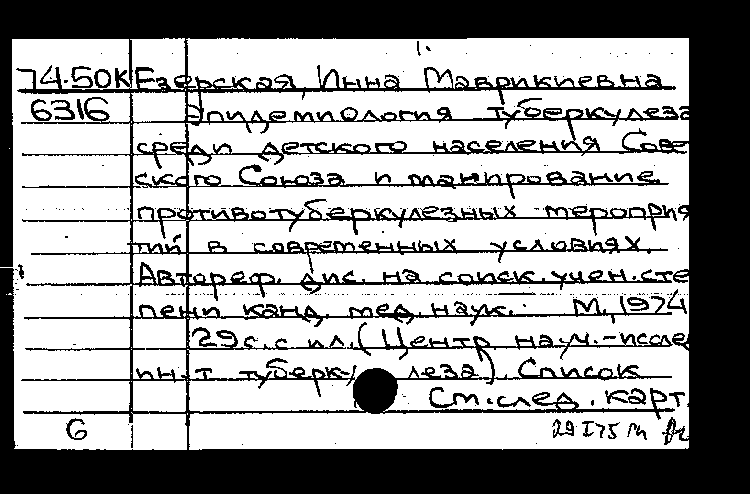 1.
74.50К Езерская, Инна Маврикиевна
6316 Эпидемиология туберкулеза
среди детского населения Сове
ского Союза и танирование
противотуберкулезных мероприя
тий в современных условиях.
Автореф. дис. на соиск. учен. сте
пени канд. мед. наук. М., 1974
29 с. с ил. (Центр. науч.-исслед
ин-т туберкулеза). Список
См. след. карт.
6 29 I 75 м